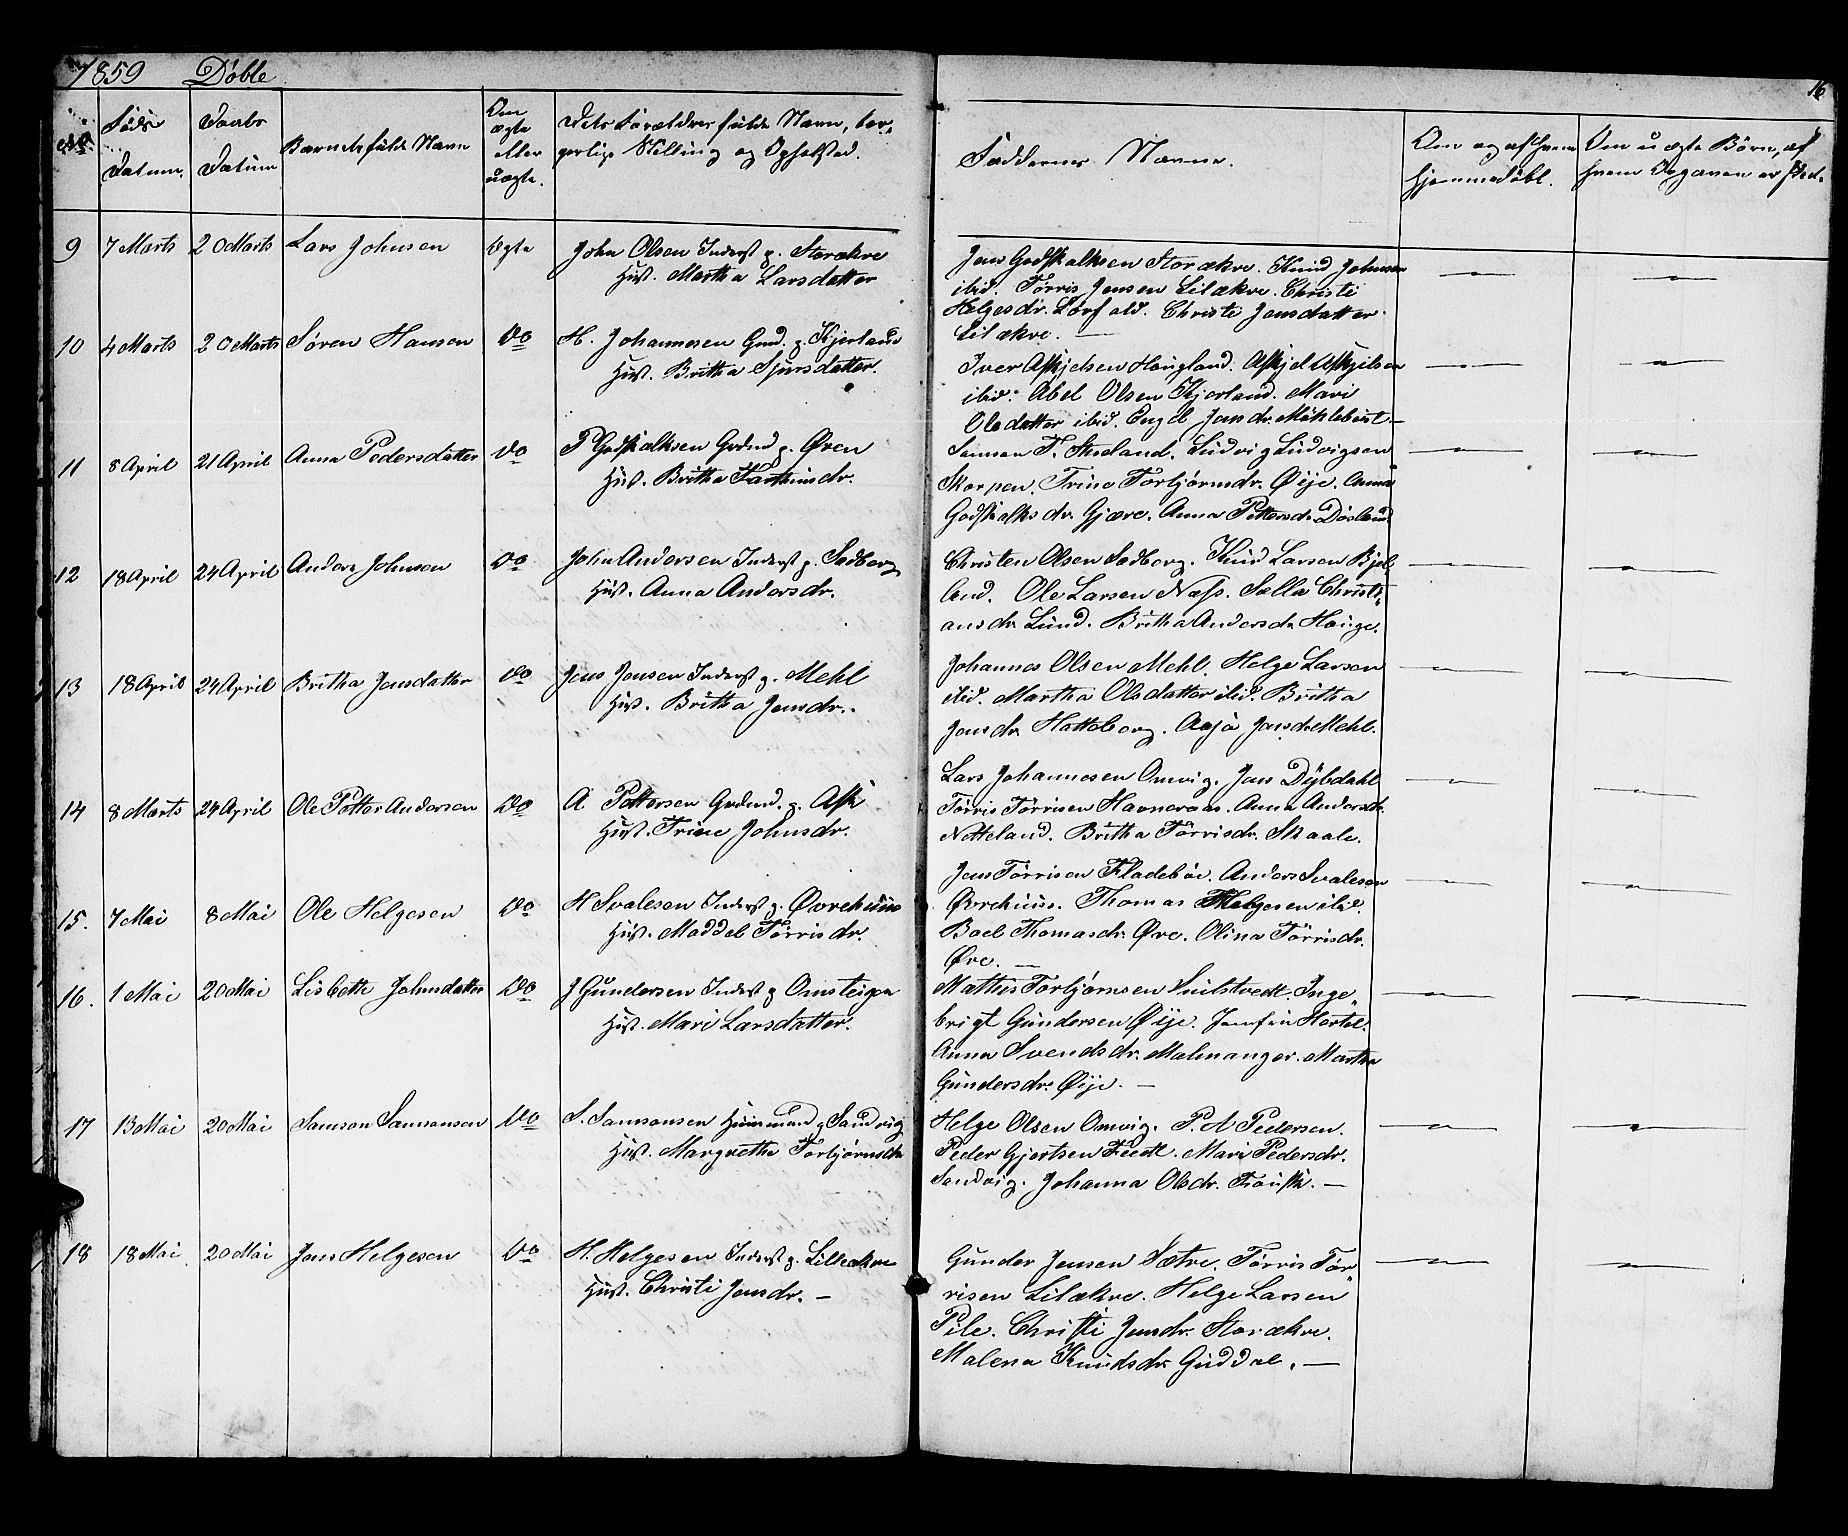 1859 Døbte
16
No.
Føds Datum.
Daabs Datum
Barnets fulde Navn
Om ægte eller uægte.
Dets Forældres fulde Navn, borgerlige Stilling og Opholdsted.
Faddernes Navne.
Om og af hvem hjemmedøbt.
Om uægte Børn, af hvem Opgaven er sked.
9 7 Marts 20 Marts Lars Johnsen Ægte John Olsen Inderst p. Storækre
Hust. Martha Larsdatter
Jens Godskalksen Storækre. Knud Johnsen
ibid. Tørris Jensen Lilækre. Christi
Helgesdr. Lørfald. Christi Jensdatter
Lilækre. —
10 4 Marts 20 Marts Søren Hansen Do H. Johannesen Grd. p. Kjerland
Hust. Britha Sjursdatter.
Iver Askjelsen Haugland. Askjel Askjelsen
ibid. Abel Olsen Kjerland. Mari
Olsdatter ibid. Engel Jensdr. Mehlebust.—
11 8 April 21 April Anna Pedersdatter Do P Godskalksen Grdmd p. Øren
Hust. Britha
Samson T. Ludvig Ludvigsen
Skorpen. Trine Torbjørnsdr. Øije. Anna
Godskalksdr. Gjære. Anna Pettersdr
12 18 April 24 April Anders Johnsen Do John Andersen Inderst p. Sedberg
Hust. Anna Andersdr.
Christen Olsen Sedberg. Knud Larsen Bjel
land. Ole Larsen Næss. Sella Christi„
ansdr Lund. Britha Andersdr Hauge.
13 18 April 24 April Britha Jensdatter Do Jens Jensen Inderst p. Mehl
Hust. Britha Jensdr.
Johannes Olsen Mehl. Helge Larsen
ibid. Martha Olsdatter ibid. Britha
Jensdr. Hatteberg. Jensdr Mehl.
14 8 Marts 24 April Ole Petter Andersen Do A Pettersen Grdmd. p. Ask
Hust. Trine Johnsdr.
Lars Johannesen Omvig. Jens Dybdahl
Tørris Tørrisen Havneraas. Anna Andersdr.
Netteland. Britha Tørrisdr. Skaale.
15. 7 Mai 8 Mai Ole Helgesen Do H Svalesen Inderst p. Øvrehuus
Hust. Maddel Tørrisdr.
Jens Tørrisen Fladebøe. Anders Svalesen
Øvrehuus. Thomas Helgesen ibid.
Boel Thomasdr. Øre. Olina Tørrisdr.
Øre. —
16. 1 Mai 20 Mai Lisbette Johnsdatter Do J Gundersen Inderst p Omsteigen
Hust. Mari Larsdatter.
Mathis Torbjørnsen Snilstvedt. Inge„
brigt Gundersen Øije. Hortel.
Anna Svendsdr. Malmanger. Martha
Gundersdr. Øije. —
17 13 Mai 20 Mai Samson Samsonsen Do S. Samsonsen Huusmand p Sandvig
Hust. Margrethe Torbjørnsdr
Helge Olsen Omvig. P. A Pedersen.
Peder Gjertsen Tvedt. Mari Pedersdr.
Sandvig. Johanna Olsdr. —
18 18 Mai. 20 Mai Jens Helgesen Do H. Helgesen Inderst p. Lilleækre
Hust. Christi Jensdr. —
Gunder Jensen Sætre. Tørris Tør„
risen Lilækre. Helge Larsen
Pile. Christi Jensdr. Storækre.
Malena Knudsdr. Guddal. —